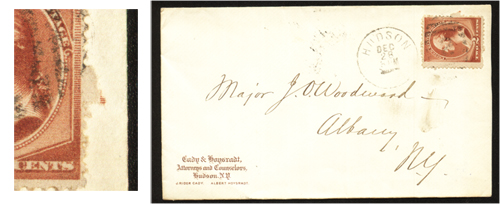 CENTS
HUDSON
DEC
Major J. O. Woodward
Albany,
N.Y.
Cady & Hoysradt,
Attorneys and Counselors,
Hudson, N.Y.
J. RIDER CADY ALBERT HOYSRADT